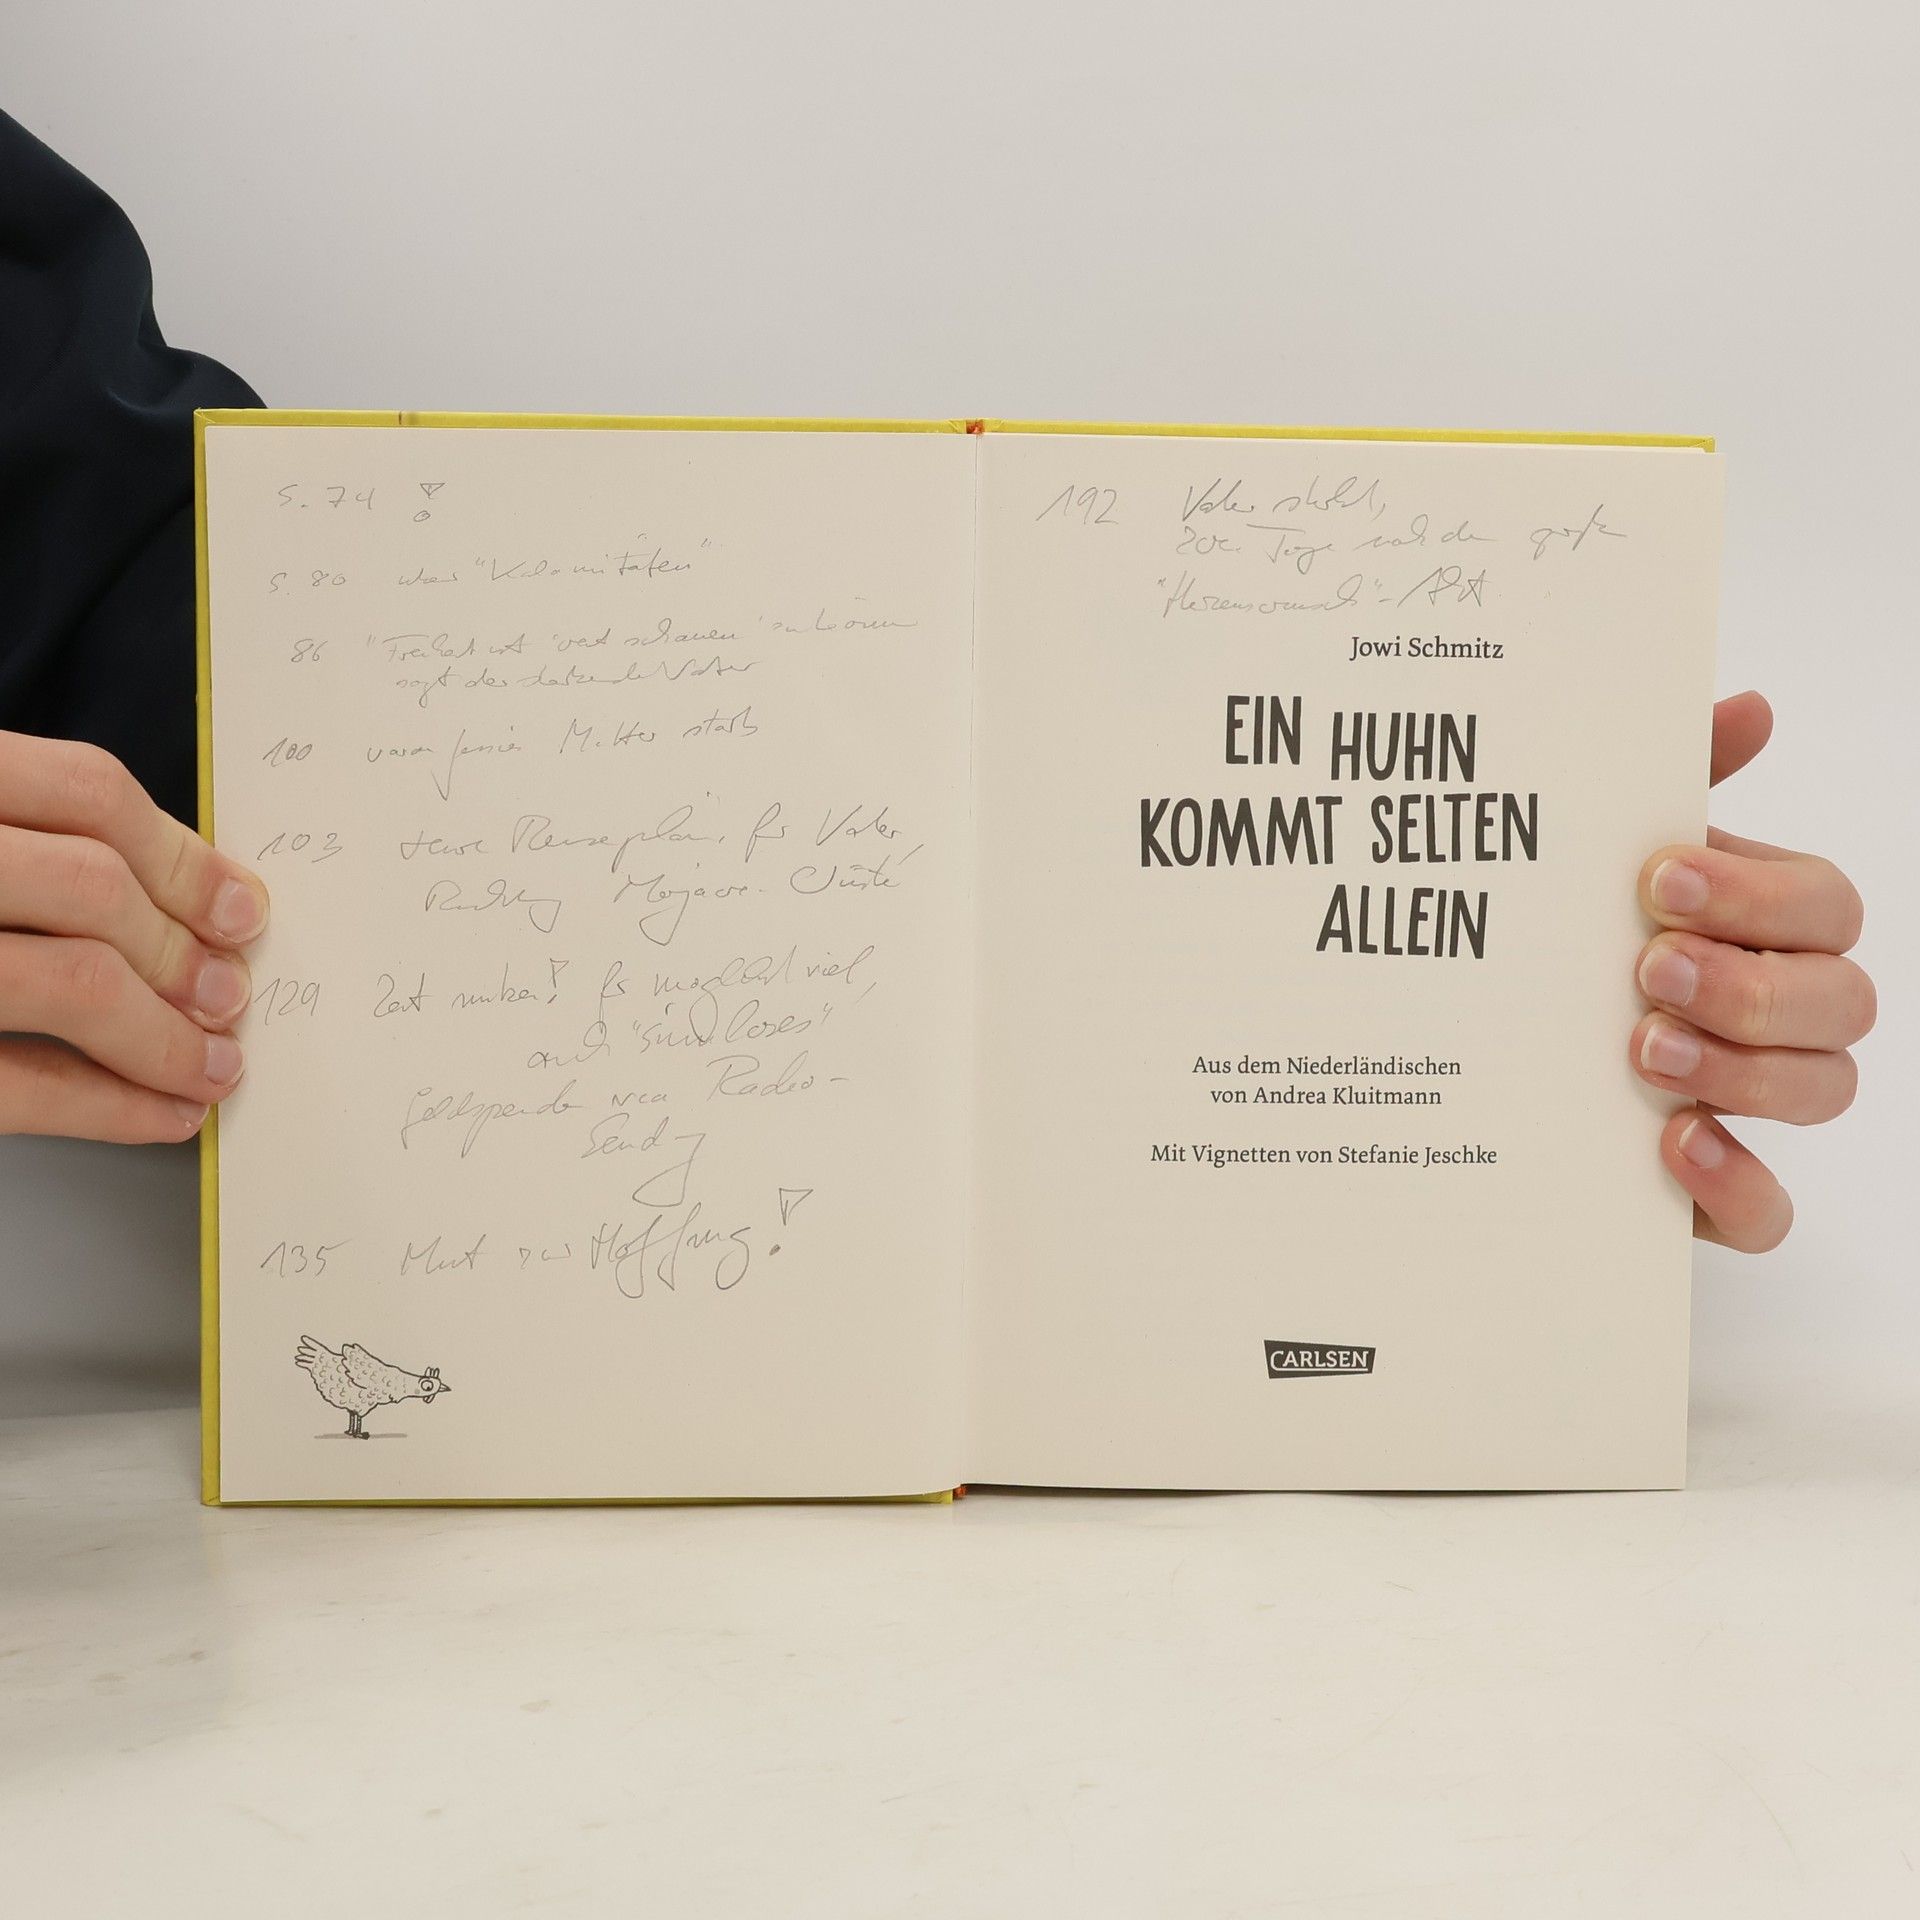 S. 74 !
S. 80 "Kalamitäten"
86 "Freiheit ist schauen zu können
sagt der Vater
100 Jessies Mutter starb
103 Reisepläne für Vater,
Richtung Wüste
129 Zeit nutzen! für möglichst viel,
auch "sinnloses"
Geldspende Radio-
Sendg
135 Mut zur Hoffnung!
192 Vater stirbt,
Tage nach der
"Herzenswunsch"-
Jowi Schmitz
EIN HUHN
KOMMT SELTEN
ALLEIN
Aus dem Niederländischen
von Andrea Kluitmann
Mit Vignetten von Stefanie Jeschke
CARLSEN